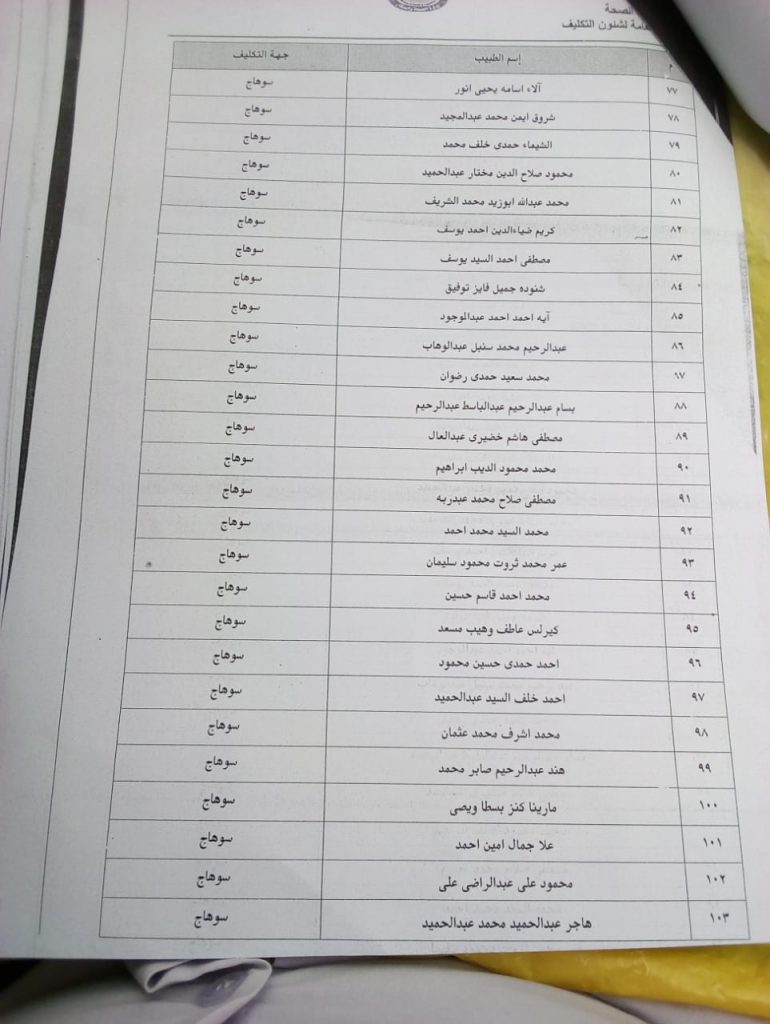 الصحة
امة لشئون التكليف
م إسم الطبيب جهة التكليف
٧٧ آلاء اسامه يحيى انور سوهاج
٧٨ شروق ايمن محمد عبدالمجيد سوهاج
٧٩ الشيماء حمدى خلف محمد سوهاج
٨٠ محمود صلاح الدين مختار عبدالحميد سوهاج
٨١ محمد عبدالله ابوزيد محمد الشريف سوهاج
٨٢ كريم ضياءالدين احمد يوسف سوهاج
٨٣ مصطفى احمد السيد يوسف سوهاج
٨٤ شنوده جميل فايز توفيق سوهاج
٨٥ آيه احمد احمد عبدالموجود سوهاج
٨٦ عبدالرحيم محمد سنبل عبدالوهاب سوهاج
٨٧ محمد سعيد حمدى رضوان سوهاج
٨٨ بسام عبدالرحيم عبدالباسط عبدالرحيم سوهاج
٨٩ مصطفى هاشم خضيرى عبدالعال سوهاج
٩٠ محمد محمود الديب ابراهيم سوهاج
٩١ مصطفى صلاح محمد عبدربه سوهاج
٩٢ محمد السيد محمد احمد سوهاج
٩٣ عمر محمد ثروت محمود سليمان سوهاج
٩٤ محمد احمد قاسم حسين سوهاج
٩٥ كيرلس عاطف وهيب مسعد سوهاج
٩٦ احمد حمدى حسين محمود سوهاج
٩٧ احمد خلف السيد عبدالحميد سوهاج
٩٨ محمد اشرف محمد عثمان سوهاج
٩٩ هند عبدالرحيم صابر محمد سوهاج
١٠٠ مارينا كنز بسطا ويصى سوهاج
١٠١ علا جمال امين احمد سوهاج
١٠٢ محمود على عبدالراضى على سوهاج
١٠٣ هاجر عبدالحميد محمد عبدالحميد سوهاج